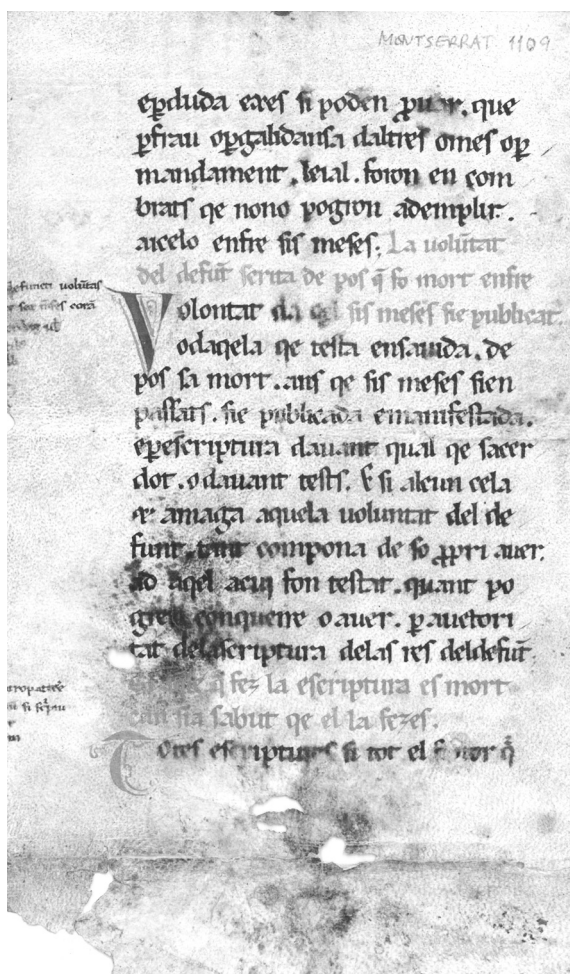 MONTSERRAT 1109
eꝑduda eres si poden ꝓuar. que
ꝑfrau oꝑgalidansa daltres omes oꝑ
mandament. leial. foron en com
brats qe nono pogron ademplir.
aicelo enfre sis meses. La volũtat
del defũt serita de pos q̃ fo mort enfre
sis meses sie publicat.
Volontat
odaqela qe testa ensauida. de
pos sa mort. ans qe sis meses sien
passats. sie publicada emanifestada.
eꝑescriptura dauant qual qe sacer
dot. odauant tests. E si alcun cela
amaga aquela uoluntat del de
funt. tant compona de so ꝓpri auer.
ad aqel acui fon testat. quant po
conquerre oauer. ꝑ auctori
tat delascriptura delas res deldefũt
q̃ fez la escriptura es mort
sia sabut qe el la fezes.
Totes escriptures si tot el q̃
defuncti volũtas